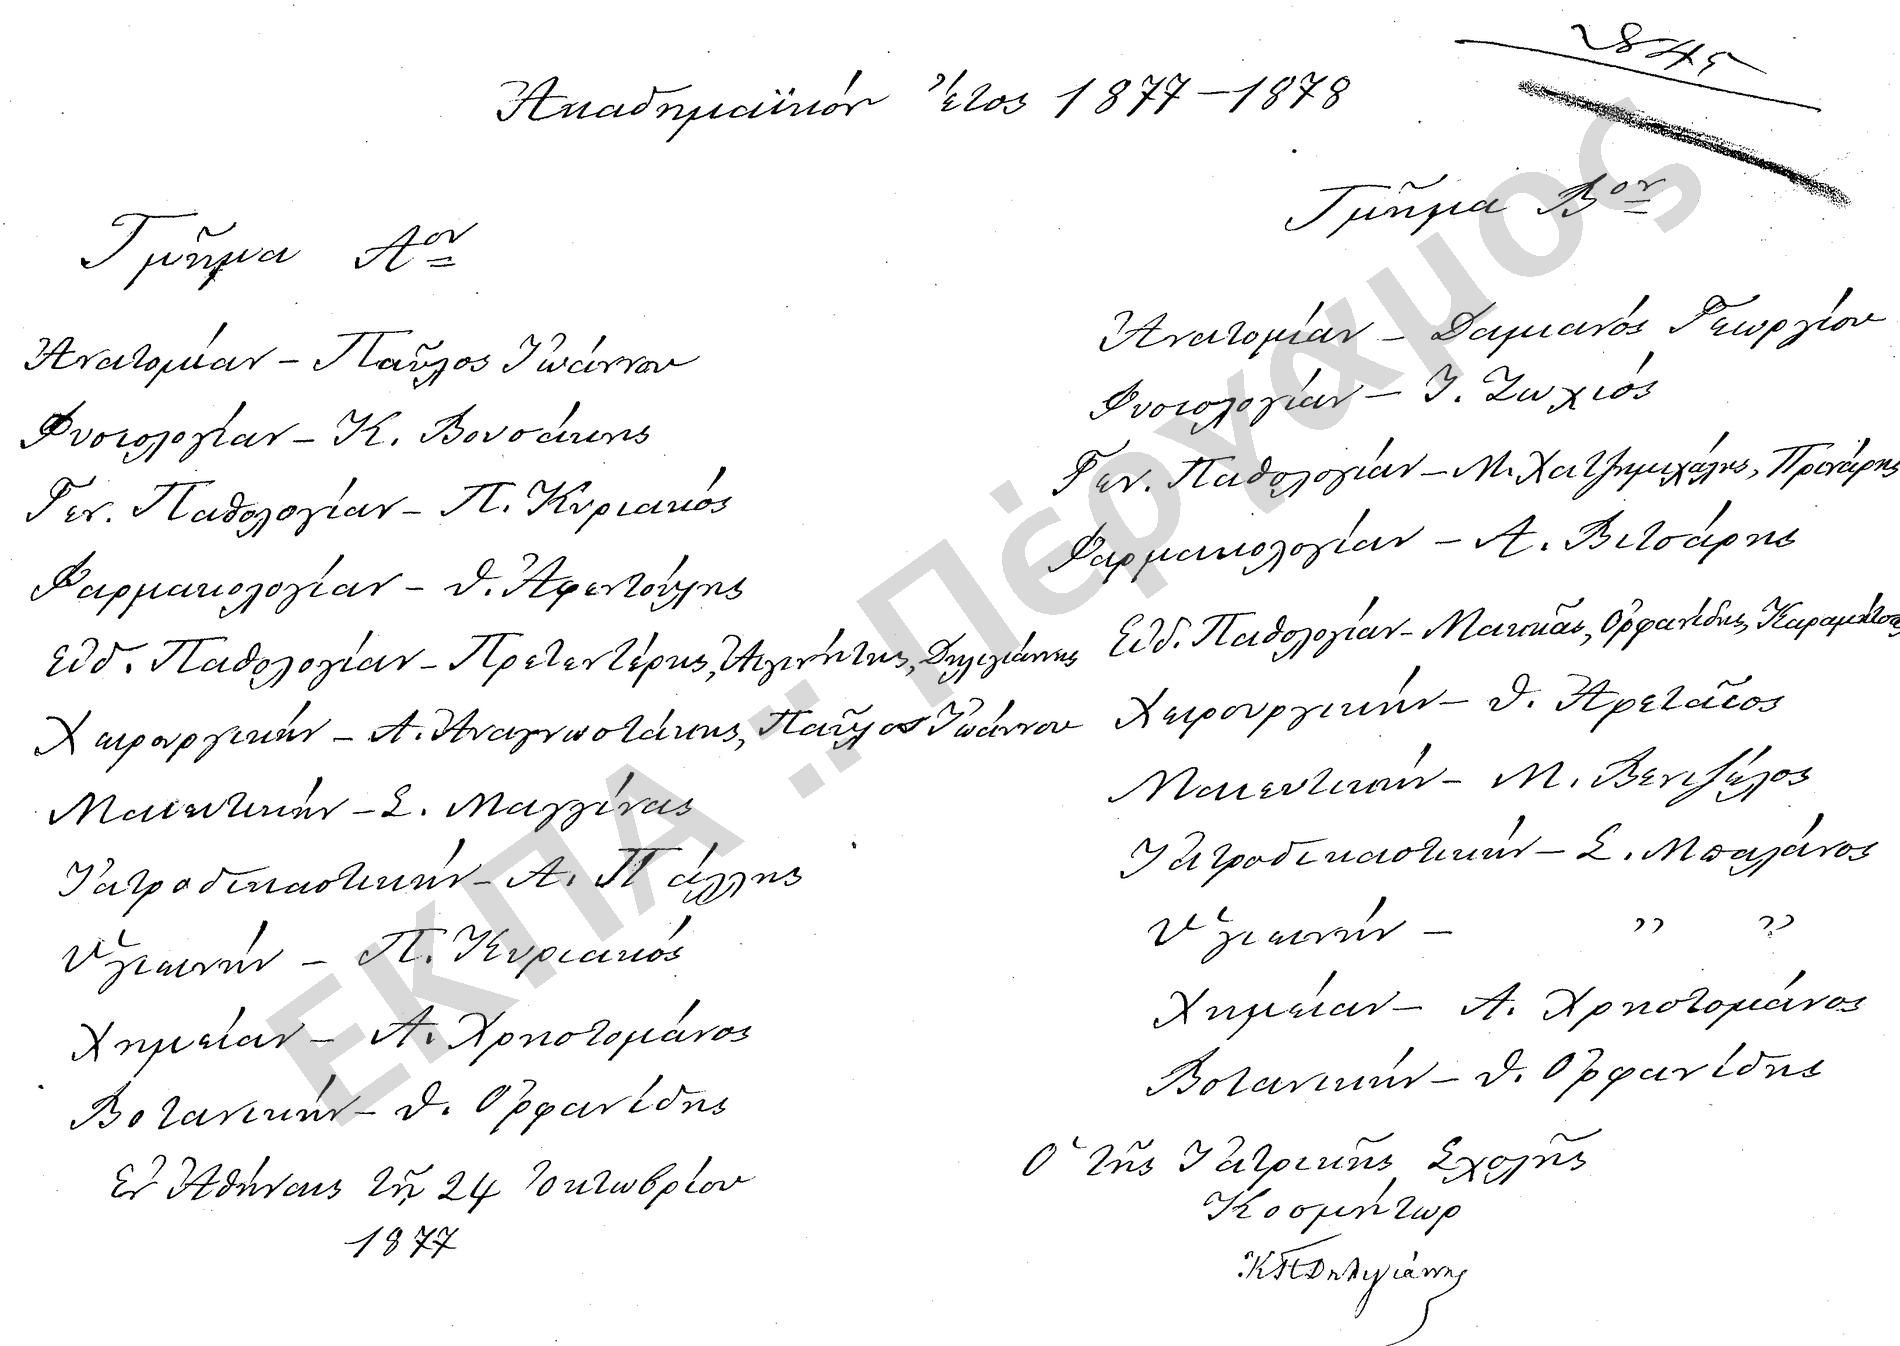 2845
Ἀκαδημαϊκὸν ἔτος 1877–1878
Τμῆμα Αον
Ἀνατομίαν – Παῦλος Ἰωάννου
Φυσιολογίαν – Κ. Βουσάκης
Γεν. Παθολογίαν – Π. Κυριακός
Φαρμακολογίαν – Θ. Ἀφεντούλης
Εἰδ. Παθολογίαν – Πρετεντέρης, Αἰγινήτης, Δηλιγιάννης
Χειρουργικήν – Α. Ἀναγνωστάκης, Παῦλος Ἰωάννου
Μαιευτικήν – Σ. Μαγγίνας
Ἰατροδικαστικήν – Α. Πάλλης
Ὑγιεινήν – Π. Κυριακός
Χημείαν – Α. Χρηστομάνος
Βοτανικήν – Θ. Ὀρφανίδης
Ἐν Ἀθήναις τῇ 24 Ὀκτωβρίου
1877
Τμῆμα Βον
Ἀνατομίαν – Δαμιανός Γεωργίου
Φυσιολογίαν – Ι. Ζωχιός
Γεν. Παθολογίαν – Μ. Χατζημιχάλης, Πρινάρης
Φαρμακολογίαν – Α. Βιτσάρης
Εἰδ. Παθολογίαν – Μακκᾶς, Ὀρφανίδης, Καραμήτσας
Χειρουργικήν – Θ. Ἀρεταῖος
Μαιευτικήν – Μ. Βενιζέλος
Ἰατροδικαστικήν – Σ. Μπαλάνος
Ὑγιεινήν – ” ”
Χημείαν – Α. Χρηστομάνος
Βοτανικήν – Θ. Ὀρφανίδης
Ὁ τῆς Ἰατρικῆς Σχολῆς
Κοσμήτωρ
ΚΠ Δηλιγιάννης
ΕΚΠΑ :: Πέργαμος